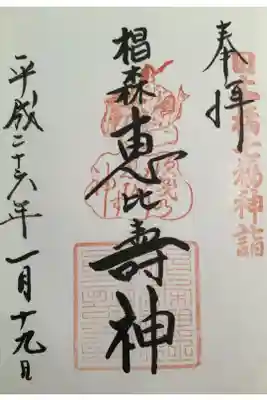 日本橋七福神詣
奉拝
椙森
恵比壽神
平成二十六年一月十九日